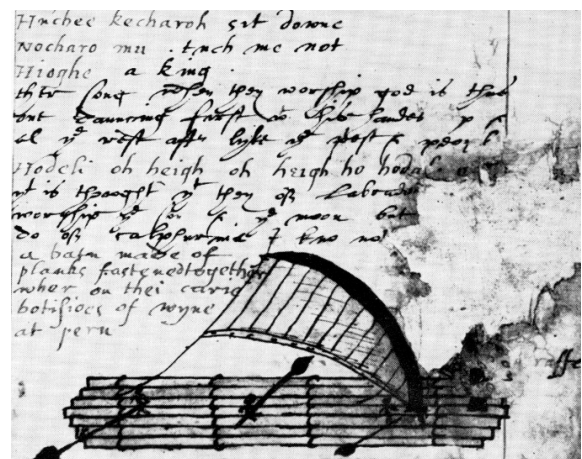 Hnchee kecharoh sit downe
Nocharo mu . tuch me not
Hioghe a king .
ther song when they worship god is thus
one dauncing first wth his handes
al ye rest after lyke ye prest &
Hodeli oh heigh oh heigh ho hodali
yt is thought yt they of Labrador
worship ye son & ye moon but
do of calphurnia I kno not
a balsa made of
planks fastened together
wher on thei carie
botisioes of wyne
at peru